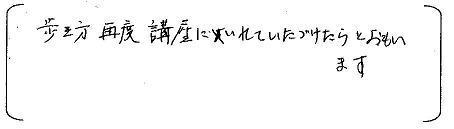 歩き方 再度 講座に入れていただけたらとおもい
ます